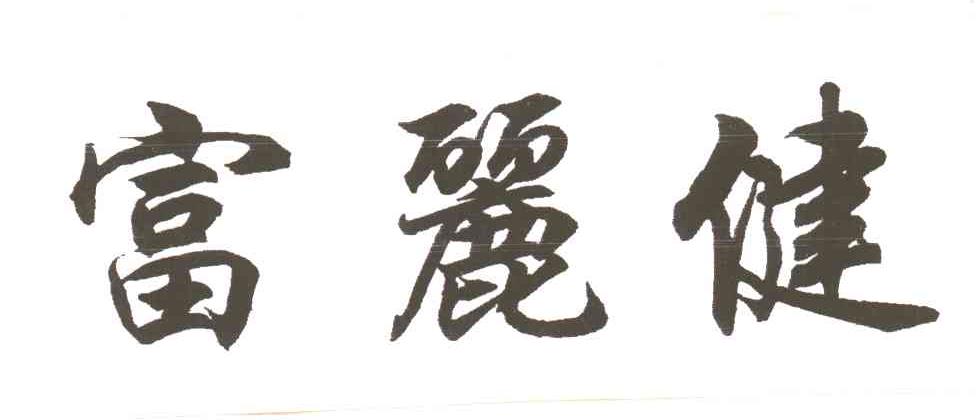 富麗健